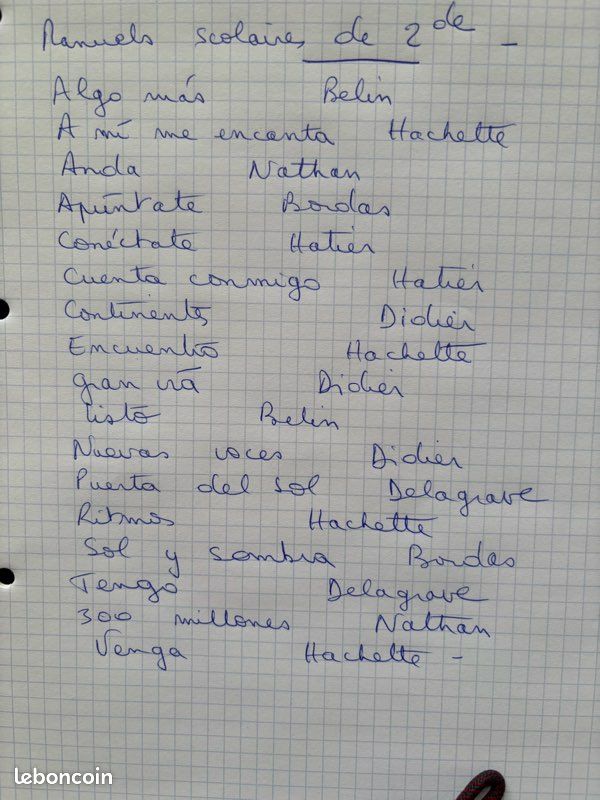 Manuels scolaires de 2de -
Algo más Belin
A mí me encanta Hachette
Anda Nathan
Apúntate Bordas
Conéctate Hatier
Cuenta conmigo Hatier
Continentes Didier
Encuentro Hachette
Gran vía Didier
Listo Belin
Nuevas voces Didier
Puerta del Sol Delagrave
Ritmos Hachette
Sol y sombra Bordas
Tengo Delagrave
300 millones Nathan
Venga Hachette -
leboncoin